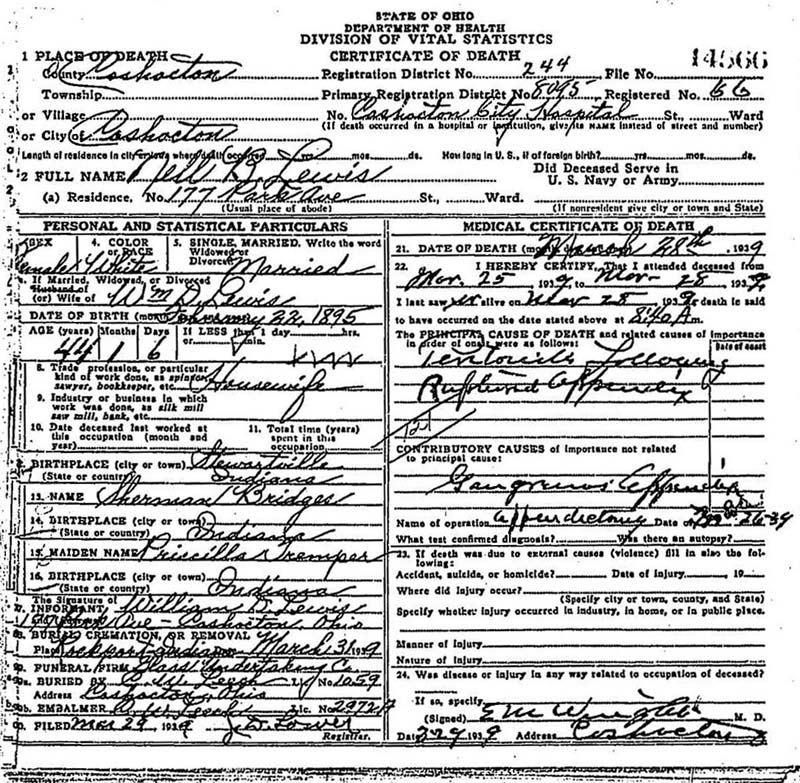 STATE OF OHIO
DEPARTMENT OF HEALTH
DIVISION OF VITAL STATISTICS
CERTIFICATE OF DEATH
14566
1 PLACE OF DEATH
County Coshocton
Registration District No. 244 File No.
Township
Primary Registration District No. 8095 Registered No. 66
or Village
No. Coshocton City Hospital St., Ward
or City of Coshocton
(If death occurred in a hospital or institution, give its NAME instead of street and number)
Length of residence in city or town where death occurred yrs. mos. ds. How long in U. S., if of foreign birth? yrs. mos. ds.
2 FULL NAME Nell B. Lewis
Did Deceased Serve in
U. S. Navy or Army
(a) Residence. No. 177 Park Ave St., Ward.
(Usual place of abode) (If nonresident give city or town and State)
PERSONAL AND STATISTICAL PARTICULARS
3. SEX Female
4. COLOR or RACE White
5. SINGLE, MARRIED. Write the word
Widowed or
Divorced Married
If Married, Widowed, or Divorced
Husband of
(or) Wife of Wm D. Lewis
DATE OF BIRTH (month 22, 1895
AGE (years) Months Days If LESS than 1 day hrs.
or min.
44 1 6
8. Trade, profession, or particular
kind of work done, as spinner,
sawyer, bookkeeper, etc. Housewife
9. Industry or business in which
work was done, as silk mill
saw mill, bank, etc.
10. Date deceased last worked at
this occupation (month and
year)
11. Total time (years)
spent in this
occupation
BIRTHPLACE (city or town) Stewartville
(State or country) Indiana
13. NAME Sherman Bridges
14. BIRTHPLACE (city or town)
(State or country) Indiana
15. MAIDEN NAME Priscilla Tremper
16. BIRTHPLACE (city or town)
(State or country) Indiana
The Signature of
INFORMANT William D. Lewis
Ave - Coshocton Ohio
BURIAL, CREMATION, OR REMOVAL March 31 1939
Place Rockport Indiana
FUNERAL FIRM Undertaking Co.
BURIED BY Lic No 1059
Address Coshocton, Ohio
EMBALMER Lic. No. 2972A
FILED Mar 29 1939 Registrar.
MEDICAL CERTIFICATE OF DEATH
21. DATE OF DEATH (month March 28th, 1939
22. I HEREBY CERTIFY, That I attended deceased from
Mar. 25 1939 to Mar. 28 1939
I last saw her alive on Mar 28 1939, death is said
to have occurred on the date stated above at 8:40 A m.
The PRINCIPAL CAUSE OF DEATH and related causes of importance
in order of onset were as follows:
Date of onset
following
Ruptured Appendix
121
CONTRIBUTORY CAUSES of importance not related
to principal cause:
Gangrenous Appendix
Name of operation appendectomy Date of 26-39
What test confirmed diagnosis? Was there an autopsy?
23. If death was due to external causes (violence) fill in also the fol-
lowing:
Accident, suicide, or homicide? Date of injury 19
Where did injury occur?
(Specify city or town, county, and State)
Specify whether injury occurred in industry, in home, or in public place.
Manner of injury
Nature of injury
24. Was disease or injury in any way related to occupation of deceased?
If so, specify
(Signed) M. D.
Date 1939 Address Coshocton